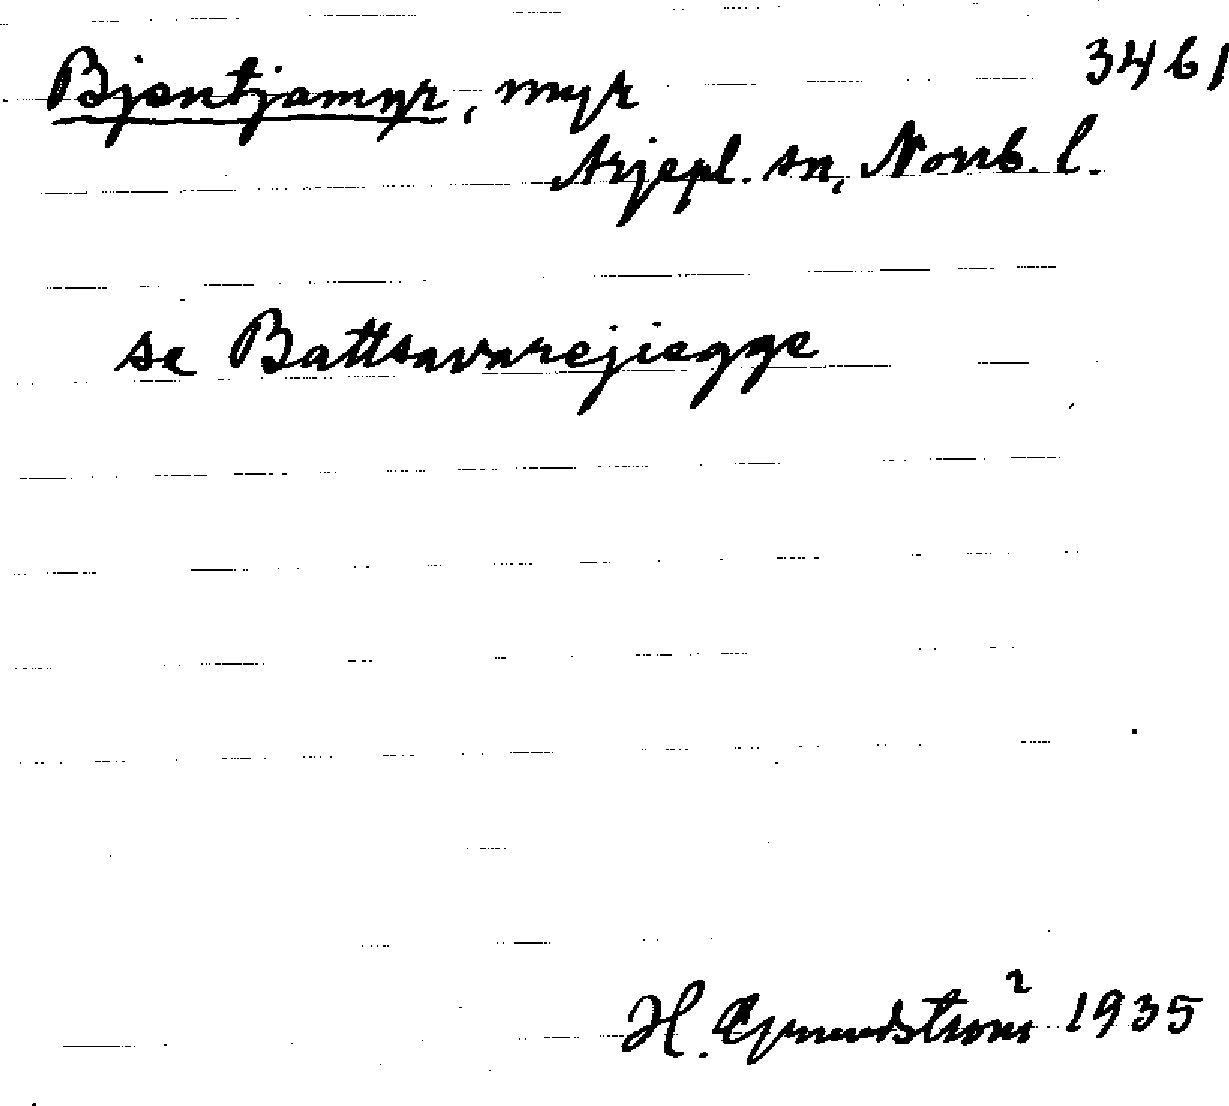 3461
Bjentjamyr, myr
Arjepl. sn, Norrb. l.
se Battsavarejiegge
H. Grundström 1935